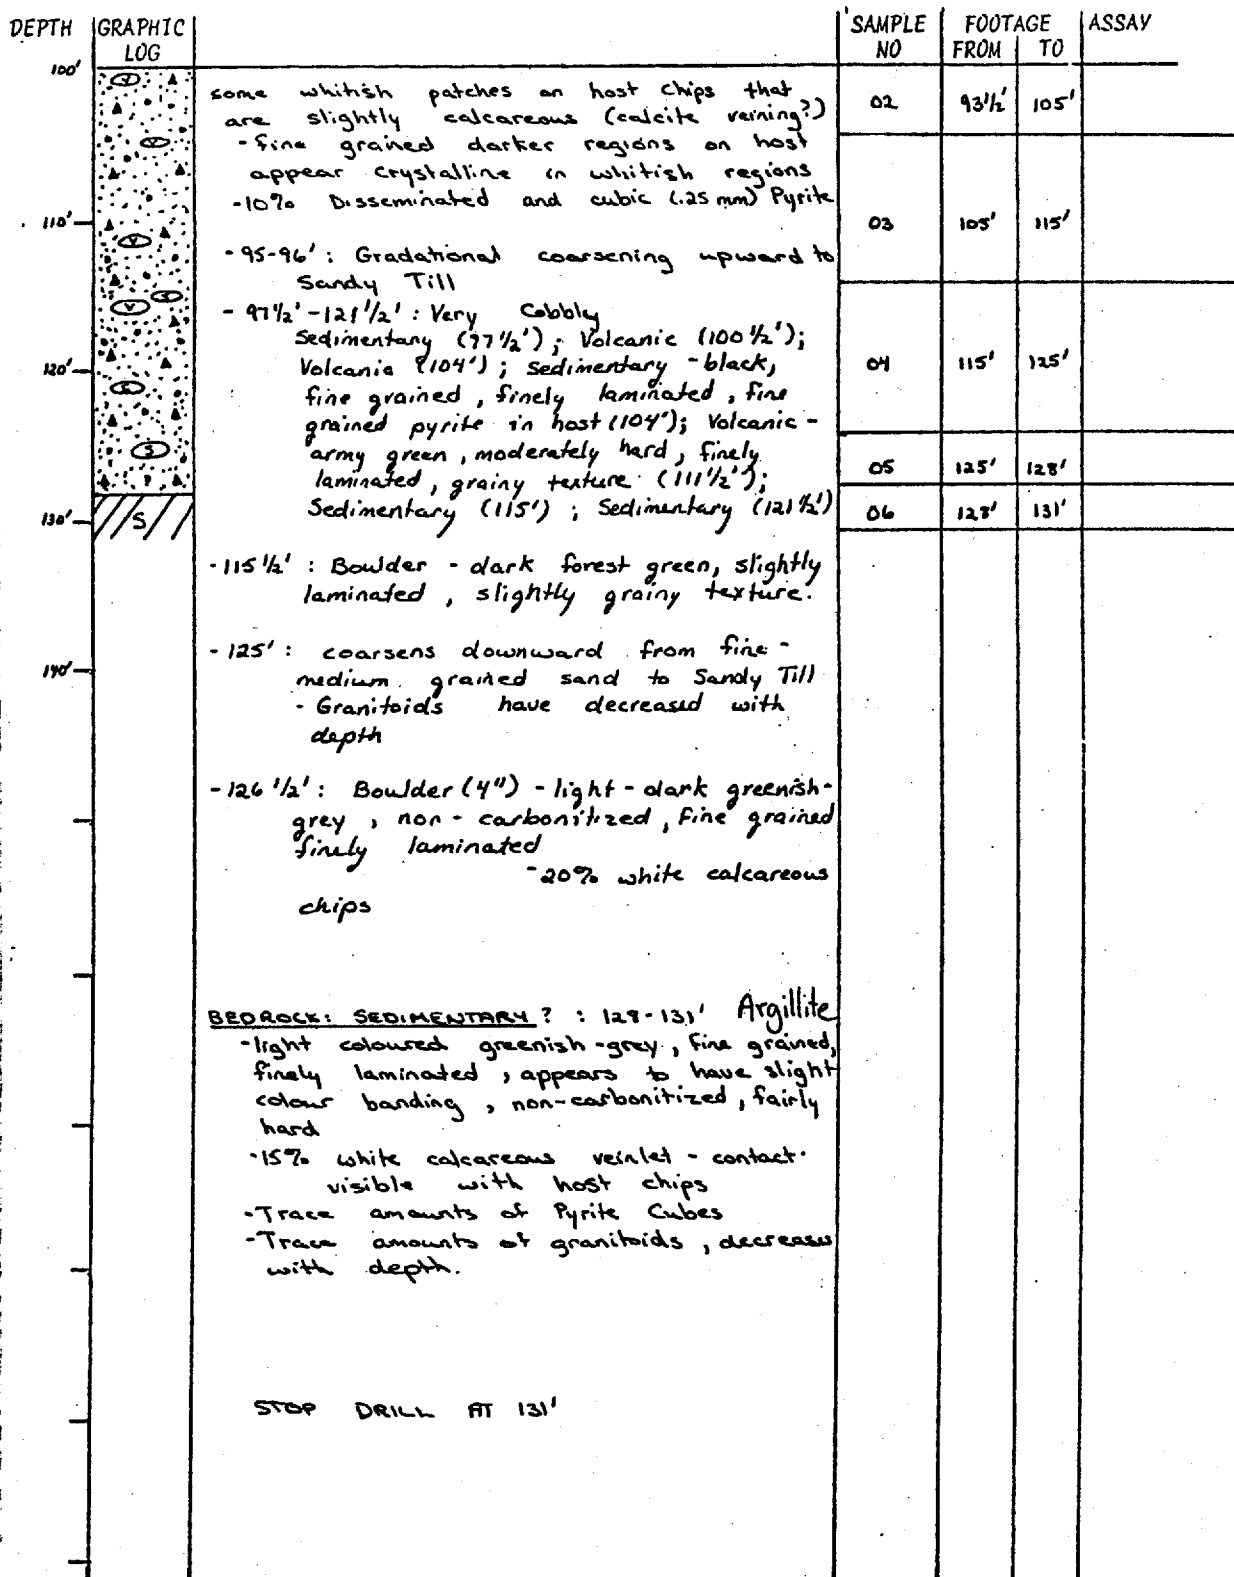 DEPTH GRAPHIC LOG SAMPLE NO FOOTAGE FROM TO ASSAY
100'
some whitish patches on host chips that 02 93½' 105'
are slightly calcareous (calcite veining?)
- fine grained darker regions on host
appear crystalline in whitish regions
-10% Disseminated and cubic (.25 mm) Pyrite
110' 03 105' 115'
- 95-96' : Gradational coarsening upward to
Sandy Till
- 97½' - 121½' : Very Cobbly
Sedimentary (97½') ; Volcanic (100½');
120' Volcanic (104') ; Sedimentary - black, 04 115' 125'
fine grained , finely laminated , fine
grained pyrite in host (104'); Volcanic -
army green , moderately hard , finely
laminated , grainy texture (111½'); 05 125' 128'
130' S Sedimentary (115') ; Sedimentary (121½') 06 128' 131'
- 115½' : Boulder - dark forest green, slightly
laminated , slightly grainy texture.
- 125' : coarsens downward from fine -
140' medium grained sand to Sandy Till
- Granitoids have decreased with
depth
- 126½' : Boulder (4") - light - dark greenish-
grey , non - carbonitized , fine grained
finely laminated
- 20% white calcareous
chips
BEDROCK: SEDIMENTARY ? : 128-131' Argillite
- light coloured greenish -grey , fine grained,
finely laminated , appears to have slight
colour banding , non-carbonitized , fairly
hard
- 15% white calcareous veinlet - contact
visible with host chips
- Trace amounts of Pyrite Cubes
- Trace amounts of granitoids , decreases
with depth.
STOP DRILL AT 131'